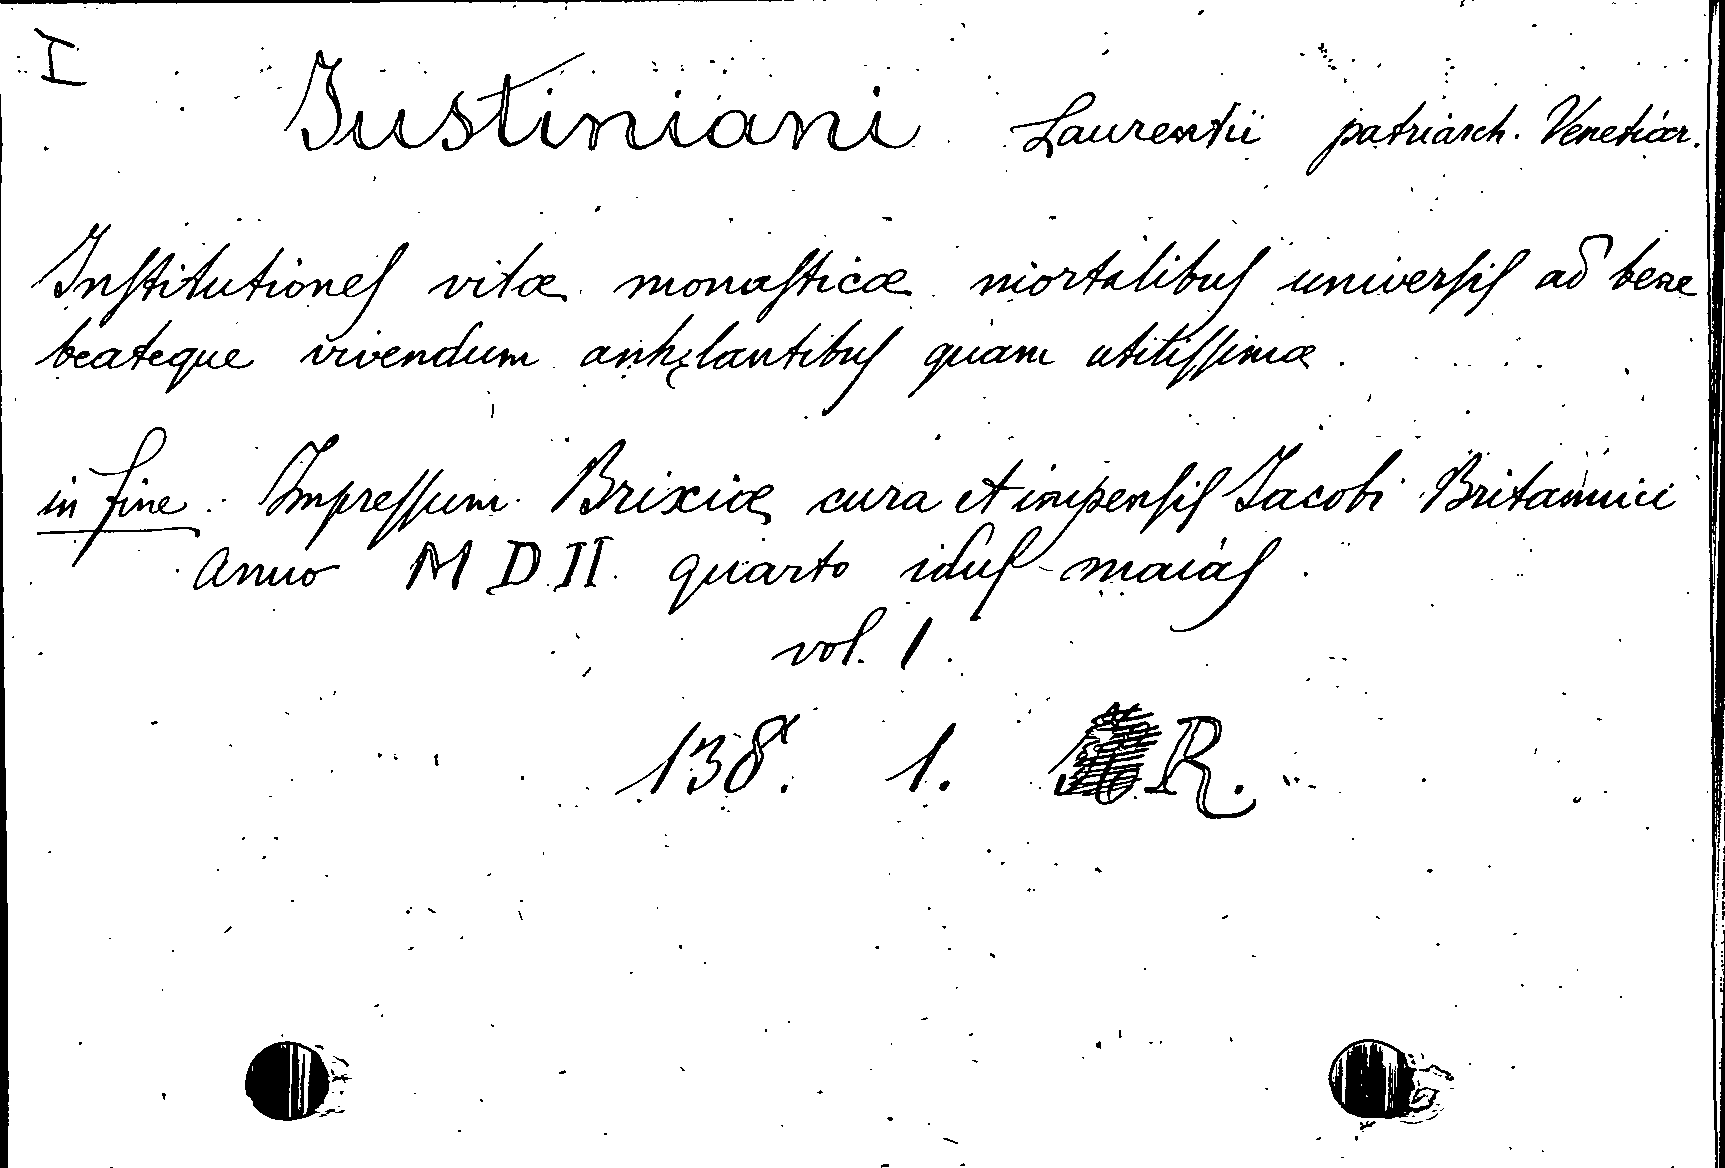 I
Justiniani Laurentii patriarch. Venetiar.
Inſtitutioneſ vitæ monaſticæ mortalibuſ univerſiſ ad bene
beateque vivendum anhęlantibuſ quam utiliſſimæ.
in fine. Impreſſum Brixiæ cura et impenſiſ Jacobi Britannici
Anno M D II quarto iduſ maiaſ.
vol. 1.
138. 1. R.